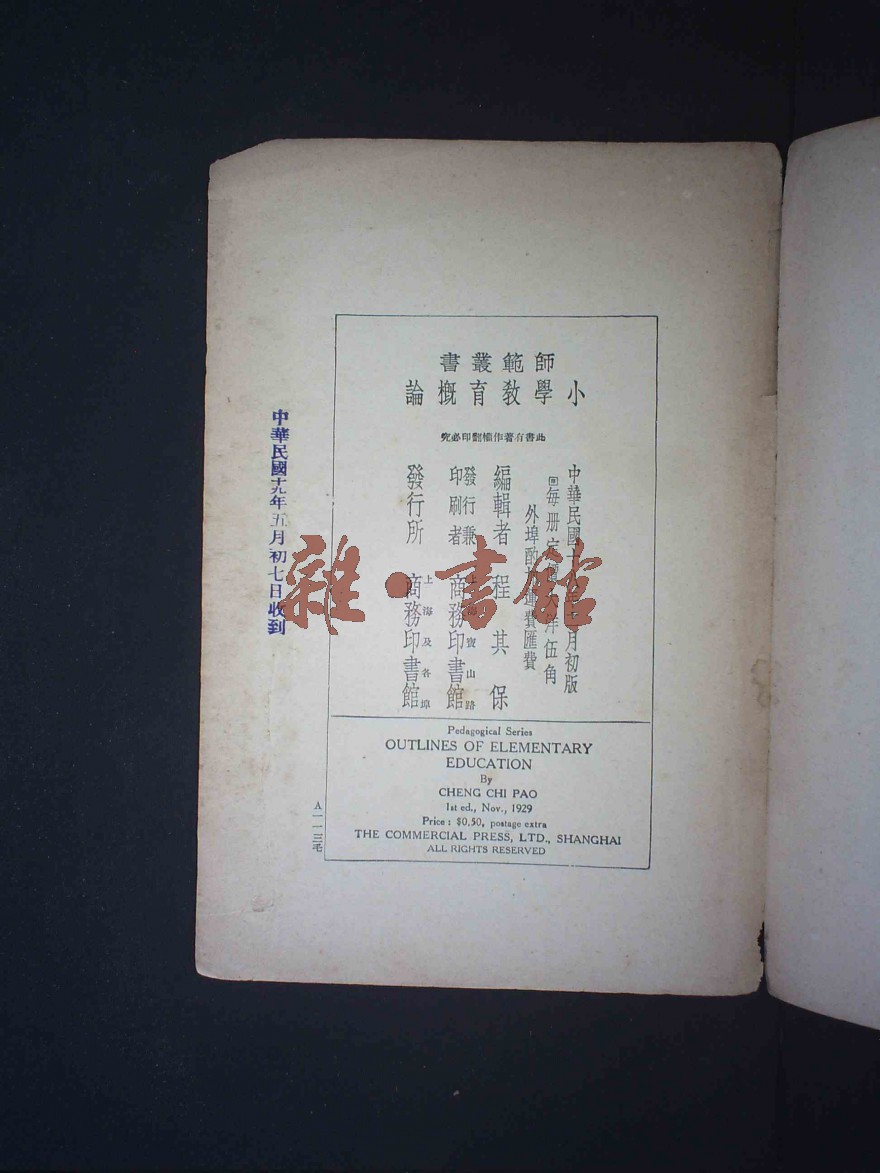 師範叢書
小學教育概論
此書有著作權翻印必究
中華民國十月初版
回每册定價大洋伍角
外埠酌加運費匯費
編輯者 程其保
發行兼印刷者 上海寶山路 商務印書館
發行所 上海及各埠 商務印書館
Pedagogical Series
OUTLINES OF ELEMENTARY
EDUCATION
By
CHENG CHI PAO
1st ed., Nov., 1929
Price : $0.50, postage extra
THE COMMERCIAL PRESS, LTD., SHANGHAI
ALL RIGHTS RESERVED
A一一三毛
中華民國十九年五月初七日收到
雜·書館